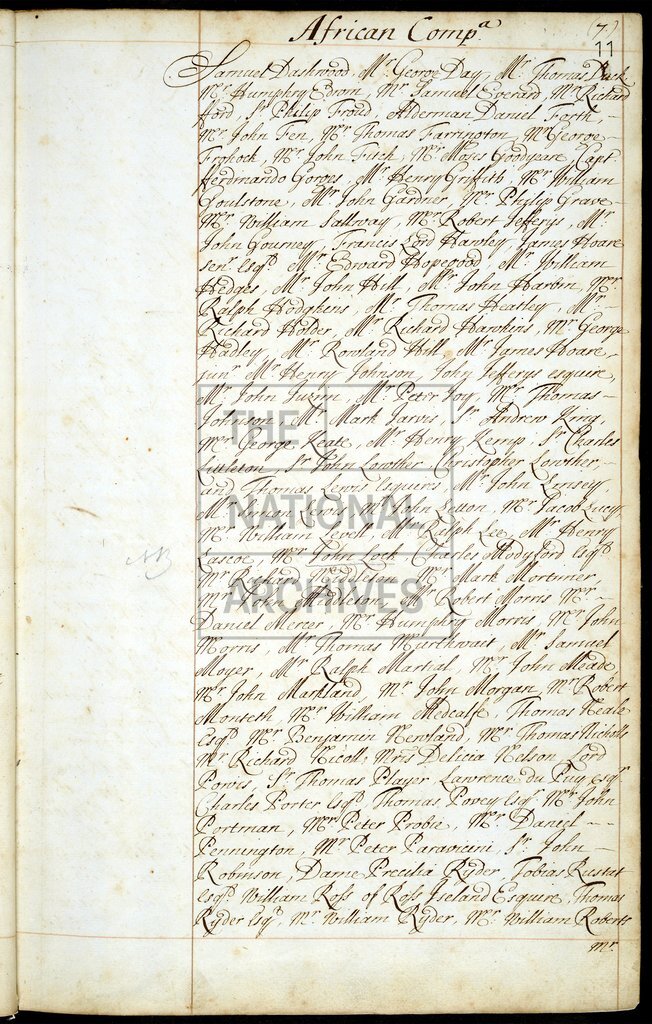 African Compª
(7)
11
Samuel Dashwood, Mr George Day, Mr Thomas
Mr Humphry Edwin, Mr Samuel Everard, Mr Richard
Ford, Sr Philip Froud, Alderman Daniel Forth,
Mr John Fen, Mr Thomas Farrington, Mr George
Frohock, Mr John Fitch, Mr Moses Goodyare, Capt
Ferdinando Gorges, Mr Henry Griffith, Mr William
Goulstone, Mr John Gardner, Mr Philip Grave
Mr William Sallway, Mr Robert Jefferys, Mr
John Gourney, Francis Lord Hawley, James Hoare
senr Esqr, Mr Edward Hopegood, Mr William
Hedges, Mr John Hill, Mr John Harbin, Mr
Ralph Hodgkins, Mr Thomas Heatley, Mr
Richard Holder, Mr Richard Hawkins, Mr George
Hadley, Mr Rowland Hill, Mr James Hoare,
junr Mr Henry Johnson, John Jefferys esquire,
Mr John Mr Peter Joy, Mr Thomas
Johnson, Mr Mark Jarvis, Sr Andrew King,
Mr George Keate, Mr Henry Kemp, Sr Charles
Littleton, Sr John Lowther, Christopher Lowther,
and Thomas Lewis Esquires, Mr John Lensey,
Mr Lewis, Mr John Letton, Mr Jacob Lucy,
Mr William Levett, Mr Ralph Lee, Mr Henry
Lascoe, Mr John Lock Charles Modyford Esqr
NB
Mr Robert Middleton Mr Mark Mortimer,
Mr John Middleton, Mr Robert Morris Mr
Daniel Mercer, Mr Humphry Morris, Mr John
Morris, Mr Thomas Murthwait, Mr Samuel
Moyer, Mr Ralph Martial, Mr John Meade
Mr John Markland, Mr John Morgan Mr Robert
Monteth, Mr William Medcalfe, Thomas Neale
Esqr Mr Benjamin Newland, Mr Thomas Nicholls
Mr Richard Nicoll, Mris Delicia Nelson Lord
Powis, Sr Thomas Player Lawrence du Puy esqr
Charles Porter Esqr, Thomas Povey Esqr Mr John
Portman, Mr Peter Probie, Mr Daniel
Pennington, Mr Peter Paravicini, Sr John
Robinson, Dame Precilia Ryder, Tobias Rustat
esqr William Ross of Ross Iseland Esquire, Thomas
Ryder Esqr Mr William Ryder, Mr William Roberts
Mr
THE
NATIONAL
ARCHIVES